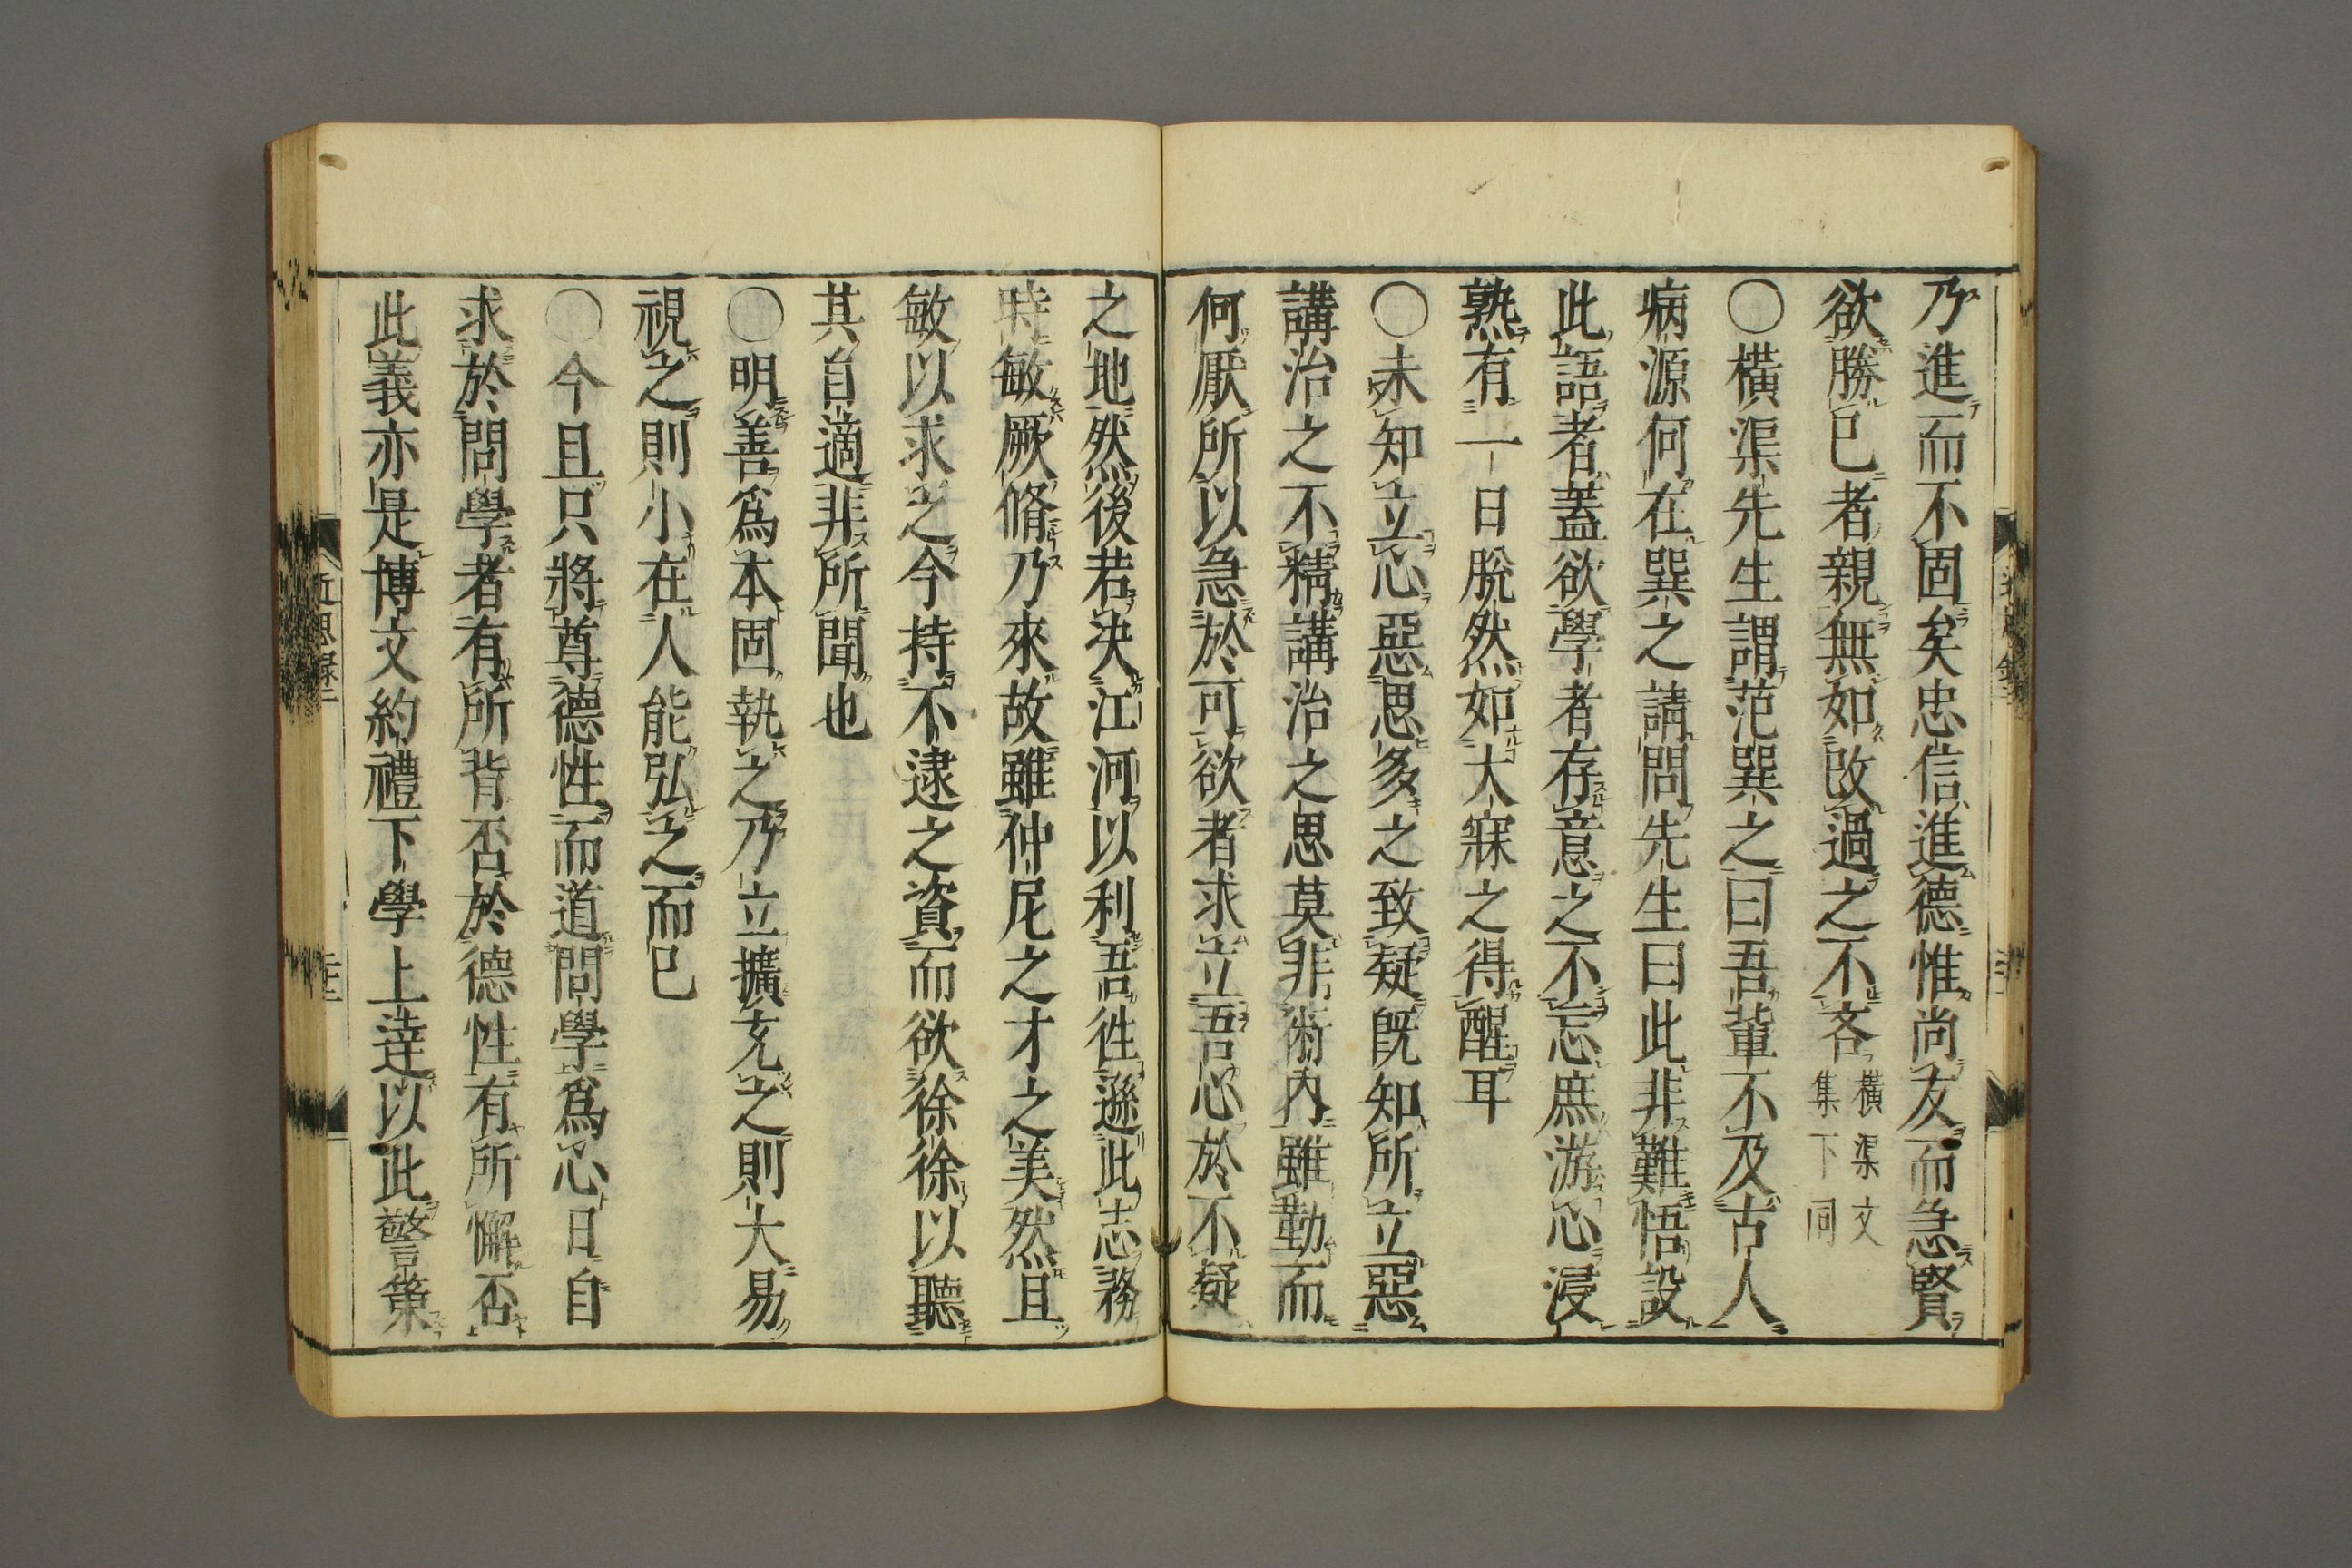 乃進而不固矣忠信進德惟尚友而急賢
欲勝已者親無如改過之不吝橫渠文集下同
〇橫渠先生謂范巽之曰吾軰不及古人
病源何在巽之請問先生曰此非難悟設
此語者蓋欲學者存意之不忘庶游心浸
熟有一日脫然如大寐之得醒耳
〇未知立心惡思多之致疑旣知所立惡
講治之不精講治之思莫非術內雖勤而
何厭所以急於可欲者求立吾心於不疑
之地然後若决江河以利吾徃遜此志務
時敏厥脩乃來故雖仲尼之才之美然且
敏以求之今持不逮之資而欲徐徐以聽
其自適非所聞也
〇明善爲本固執之乃立擴充之則大易
視之則小在人能弘之而已
〇今且只將尊德性而道問學爲心日自
求於問學者有所背否於德性有所懈否
此義亦是博文約禮下學上達以此警策
近思録二
二十二